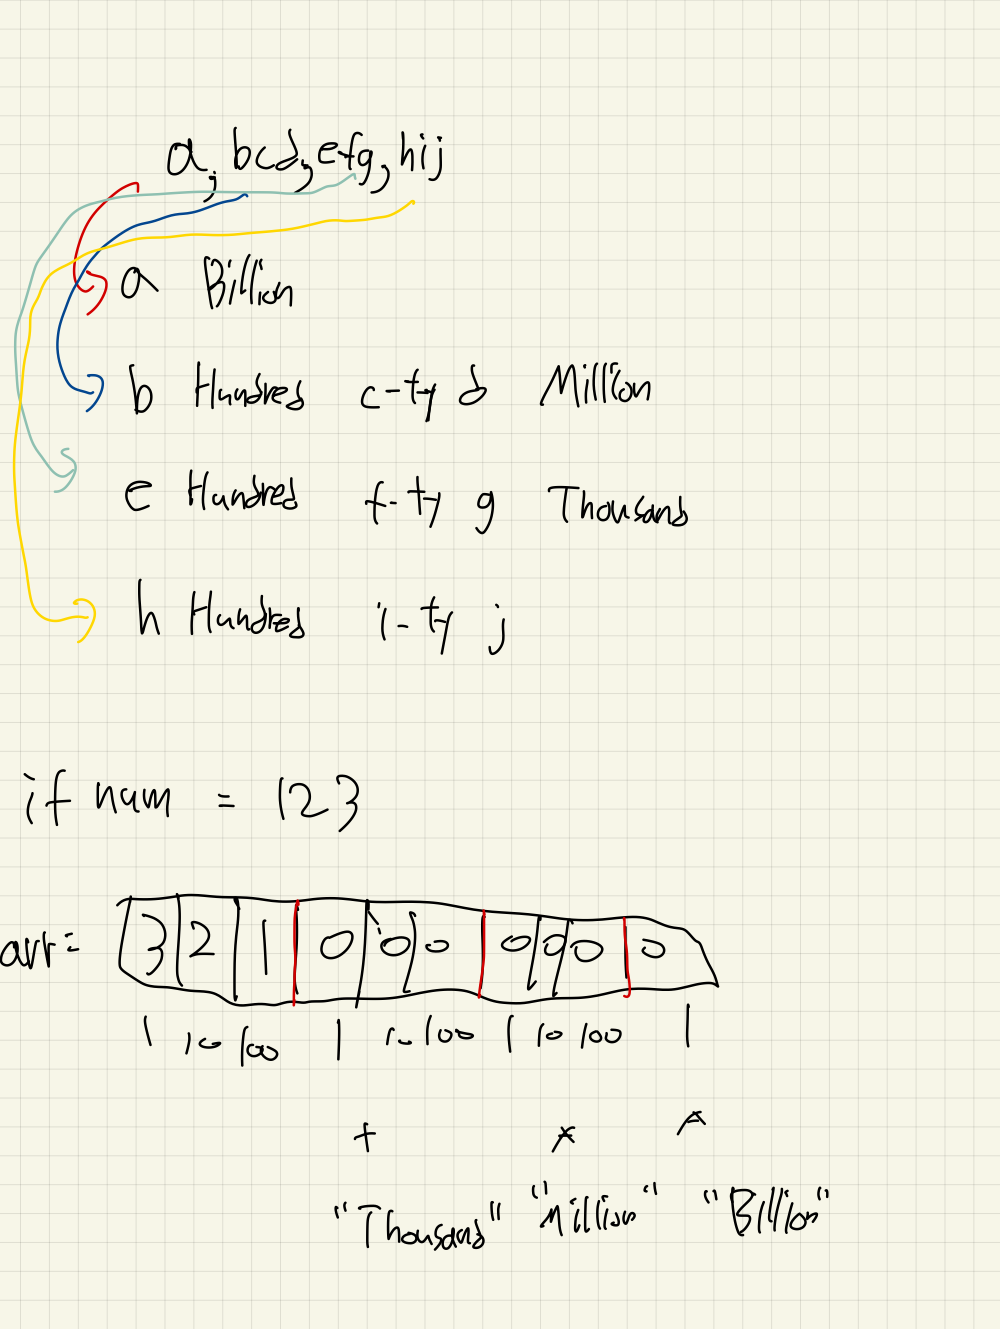 a, bcd, efg, hij
a Billion
b Hundred c-ty d Million
e Hundred f-ty g Thousand
h Hundred i-ty j
if num = 123
arr= 3 2 1 0 0 0 0 0 0 0
1 10 100 1 10 100 1 10 100 1
"Thousand" "Million" "Billion"